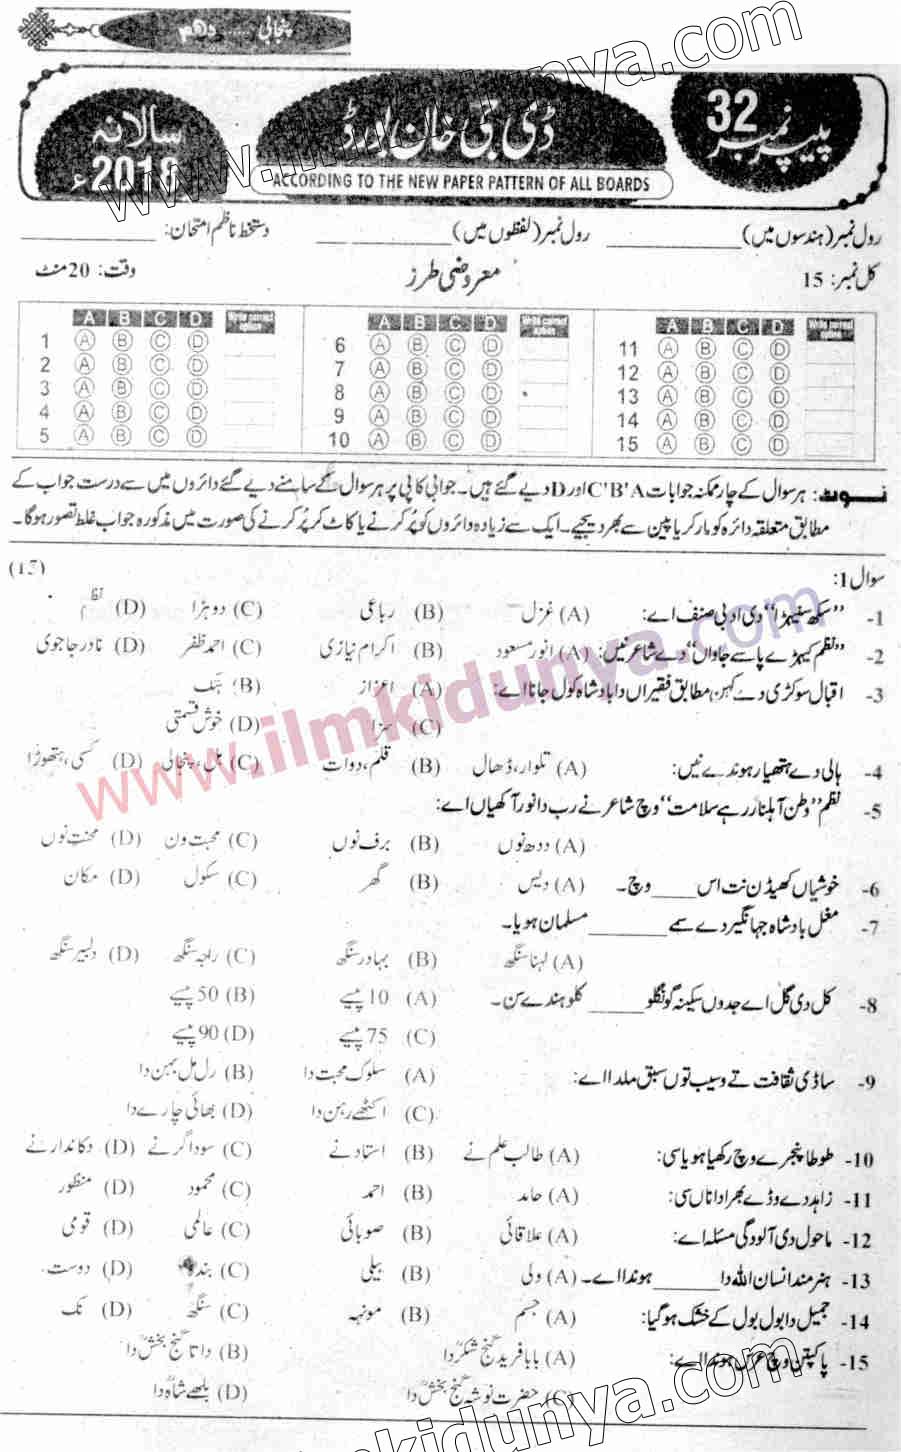 پنجابی ..... دہم
سالانہ 2018ء
ڈی جی خان بورڈ
پیپر نمبر 32
ACCORDING TO THE NEW PAPER PATTERN OF ALL BOARDS
رول نمبر (ہندسوں میں) ________ رول نمبر (لفظوں میں) ________ دستخط ناظم امتحان: ________
کل نمبر: 15 معروضی طرز وقت: 20 منٹ
A B C D Write correct option A B C D Write correct option A B C D Write correct option
1 A B C D 6 A B C D 11 A B C D
2 A B C D 7 A B C D 12 A B C D
3 A B C D 8 A B C D 13 A B C D
4 A B C D 9 A B C D 14 A B C D
5 A B C D 10 A B C D 15 A B C D
نوٹ: ہر سوال کے چار ممکنہ جوابات C'B'A اور D دیے گئے ہیں۔ جوابی کاپی پر ہر سوال کے سامنے دیے گئے دائروں میں سے درست جواب کے
مطابق متعلقہ دائرہ کو مارکر یا پین سے بھر دیجیے۔ ایک سے زیادہ دائروں کو پُر کرنے یا کاٹ کر پُر کرنے کی صورت میں مذکورہ جواب غلط تصور ہوگا۔
سوال 1: (15)
1- ’’سکھ سنیہڑا‘‘ دی ادبی صنف اے: (A) غزل (B) رباعی (C) دوہڑا (D) نظم
2- ’’نظم کیہڑے پاسے جاواں‘‘ دے شاعر نیں: (A) انور مسعود (B) اکرام نیازی (C) احمد ظفر (D) نادر جاجوی
3- اقبال سوکڑی دے کہن مطابق فقیراں دا بادشاہ کول جانا اے: (A) اعزاز (B) ہتک
(C) سزا (D) خوش قسمتی
4- ہالی دے ہتھیار ہوندے نیں: (A) تلوار، ڈھال (B) قلم، دوات (C) ہل، پنجالی (D) کسی، ہتھوڑا
5- نظم ’’وطن آہلنا رہے سلامت‘‘ وچ شاعر نے رب دا نور آکھیاں اے:
(A) ددھ نوں (B) برف نوں (C) محبت ون (D) محنت نوں
6- خوشیاں کھیڈن نت اس ____ وچ۔ (A) دیس (B) گھر (C) سکول (D) مکان
7- مغل بادشاہ جہانگیر دے سمے ________ مسلمان ہویا۔
(A) لہنا سنگھ (B) بہادر سنگھ (C) راجہ سنگھ (D) دلبیر سنگھ
8- کل دی گل اے جدوں سکینہ گونگلو ______ کلو ہندے سن۔ (A) 10 پیسے (B) 50 پیسے
(C) 75 پیسے (D) 90 پیسے
9- ساڈی ثقافت تے وسیب توں سبق ملدا اے: (A) سلوک محبت دا (B) رل مل بہن دا
(C) اکٹھے رہن دا (D) بھائی چارے دا
10- طوطا پنجرے وچ رکھیا ہویا سی: (A) طالب علم نے (B) استاد نے (C) سوداگر نے (D) دکاندار نے
11- زاہد دے وڈے بھرا دا ناں سی: (A) حامد (B) احمد (C) محمود (D) منظور
12- ماحول دی آلودگی مسئلہ اے: (A) علاقائی (B) صوبائی (C) عالمی (D) قومی
13- ہنر مند انسان اللہ دا ______ ہوندا اے۔ (A) ولی (B) بیلی (C) بندہ (D) دوست
14- جمیل دا بول بول کے خشک ہو گیا: (A) جسم (B) مونہہ (C) سنگھ (D) نک
15- پاکپتن وچ عرس ہوندا اے: (A) بابا فرید گنج شکرؒ دا (B) داتا گنج بخشؒ دا
(C) حضرت نوشہ گنج بخشؒ دا (D) بلھے شاہؒ دا
www.ilmkidunya.com
www.ilmkidunya.com
ilmkidunya.com